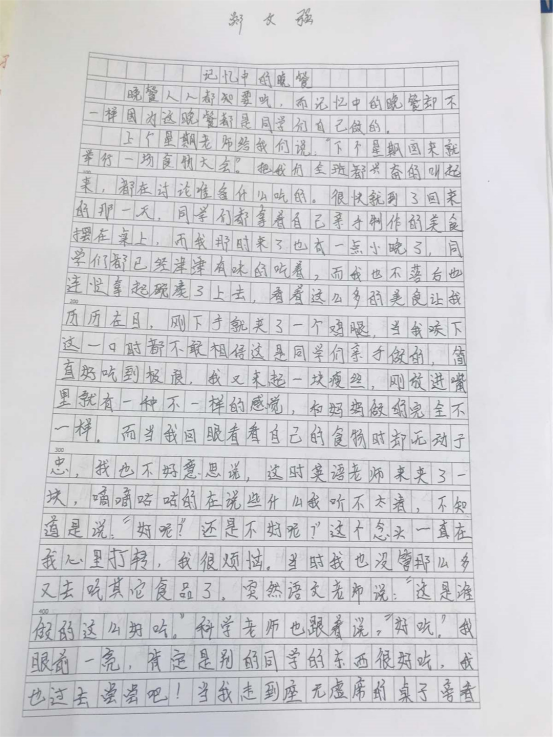 郑文强
记忆中的晚餐
晚餐人人都知要吃，而记忆中的晚餐却不
一样因为这晚餐都是同学们自己做的。
上个星期老师给我们说：“下个星期回来就
举行一场食物大会”。把我们全班都兴奋的叫起
来，都在讨论准备什么吃的。很快就到了回来
的那一天，同学们都拿着自己亲手制作的美食
摆在桌上，而我那时来了也有一点小晚了，同
学们都已经津津有味的吃着，而我也不落后也
连忙拿起碗凑了上去，看着这么多的美食让我
历历在目，刚下手就夹了一个鸡腿，当我咬下
这一口时都不敢相信这是同学们亲手做的，简
直好吃到极限，我又夹起一块瘦丝，刚放进嘴
里就有一种不一样的感觉，和妈妈做的完全不
一样。而当我回眼看看自己的食物时却无动于
300
忠，我也不好意思说，这时英语老师来夹了一
块，嘀嘀咕咕的在说些什么我听不太清，不知
道是说：“好呢？还是不好呢？”这个念头一直在
我心里打转，我很烦恼。当时我也没管那么多
又去吃其它食品了。突然语文老师说：“这是谁
400
做的这么好吃。”科学老师也跟着说：“好吃”。我
眼前一亮，肯定是别的同学的东西很好吃，我
也过去尝尝吧！当我走到座无虚席的桌子旁看